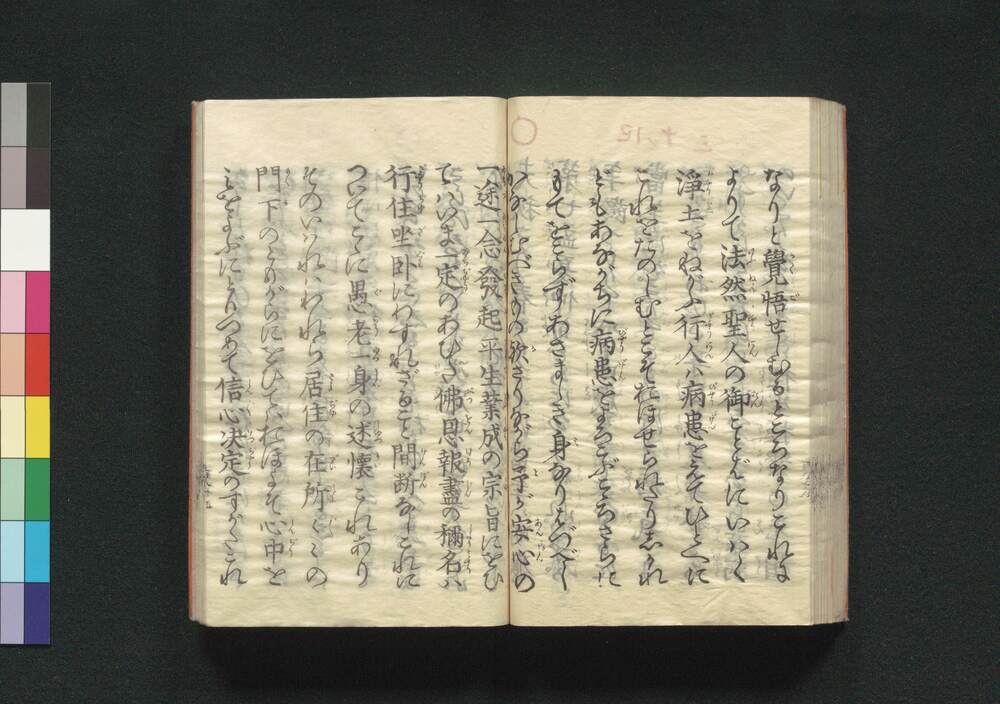 なりと覺悟せしむるところなりこれに
よりて法然聖人の御ことばにいはく
淨土をねがふ行人は病患をえてひとへに
これをたのしむとこそおほせられたりしかれ
どもあながちに病患をよろこぶこゝろさらに
もておこらずあさましき身なりはづべし
かなしむべきもの歟さりながら予が安心の
一途一念發起平生業成の宗旨にをひ
てはいま一定のあひだ佛恩報盡の稱名は
行住坐卧にわすれざること間断なしこれに
ついてこゝに愚老一身の述懷これあり
そのいはれはわれら居住の在所々々の
門下のともがらにをひてはおほよそ心中を
みをよぶにとりつめて信心决定のすがたこれ